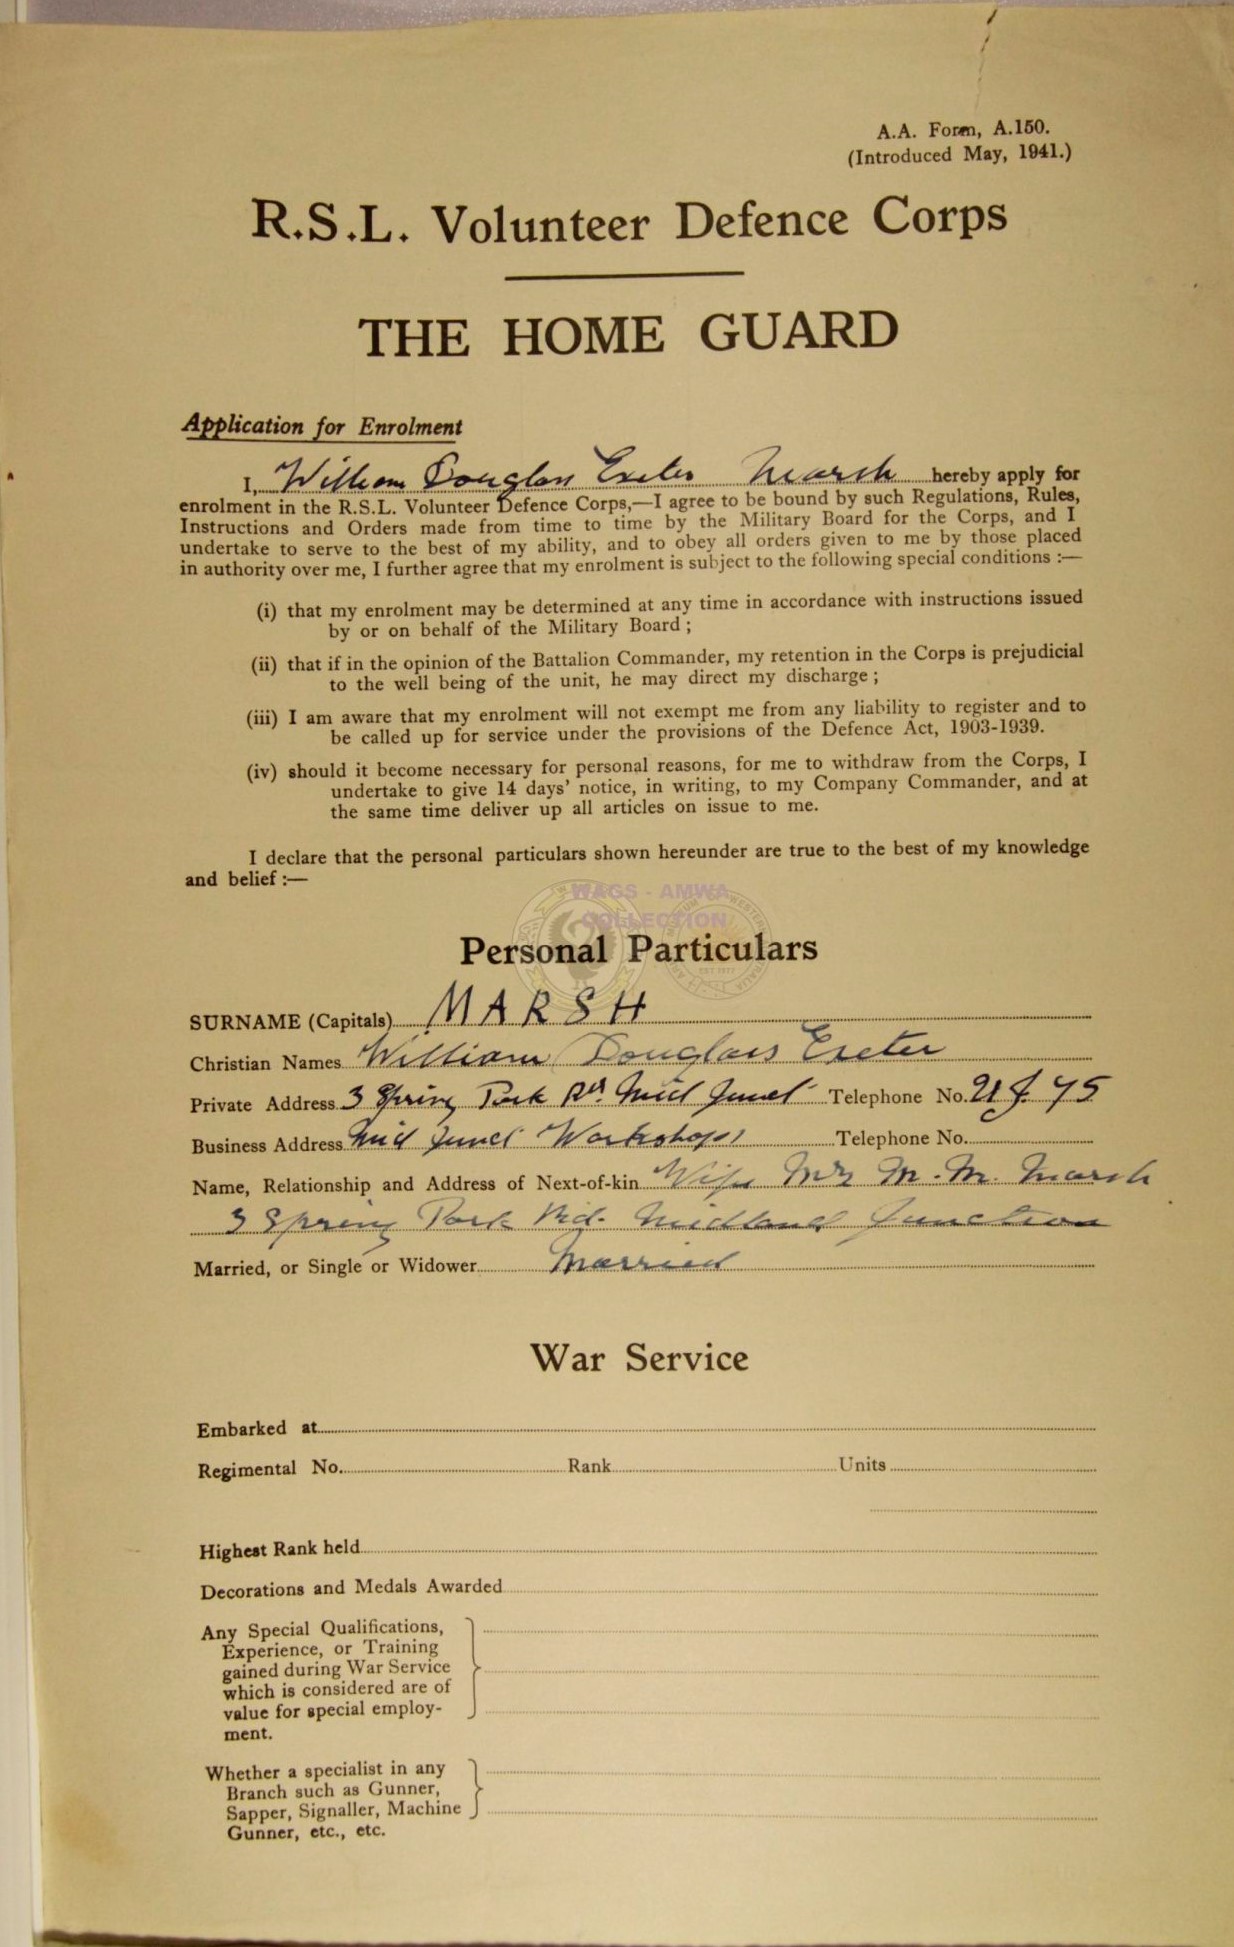 A.A. Form, A.150.
(Introduced May, 1941.)
R.S.L. Volunteer Defence Corps
THE HOME GUARD
Application for Enrolment
I, William Douglass Exeter Marsh hereby apply for
enrolment in the R.S.L. Volunteer Defence Corps,—I agree to be bound by such Regulations, Rules,
Instructions and Orders made from time to time by the Military Board for the Corps, and I
undertake to serve to the best of my ability, and to obey all orders given to me by those placed
in authority over me, I further agree that my enrolment is subject to the following special conditions :—
(i) that my enrolment may be determined at any time in accordance with instructions issued
by or on behalf of the Military Board ;
(ii) that if in the opinion of the Battalion Commander, my retention in the Corps is prejudicial
to the well being of the unit, he may direct my discharge ;
(iii) I am aware that my enrolment will not exempt me from any liability to register and to
be called up for service under the provisions of the Defence Act, 1903-1939.
(iv) should it become necessary for personal reasons, for me to withdraw from the Corps, I
undertake to give 14 days' notice, in writing, to my Company Commander, and at
the same time deliver up all articles on issue to me.
I declare that the personal particulars shown hereunder are true to the best of my knowledge
and belief :—
WAGS - AMWA
COLLECTION
Personal Particulars
SURNAME (Capitals) MARSH
Christian Names William Douglass Exeter
Private Address 3 Spring Park Rd. Mid Junct Telephone No.
Business Address Mid Junct Workshops Telephone No.
Name, Relationship and Address of Next-of-kin Wife Mrs M. M. Marsh
3 Spring Park Rd. Midland Junction
Married, or Single or Widower Married
War Service
Embarked at
Regimental No. Rank Units
Highest Rank held
Decorations and Medals Awarded
Any Special Qualifications,
Experience, or Training
gained during War Service
which is considered are of
value for special employ-
ment.
Whether a specialist in any
Branch such as Gunner,
Sapper, Signaller, Machine
Gunner, etc., etc.